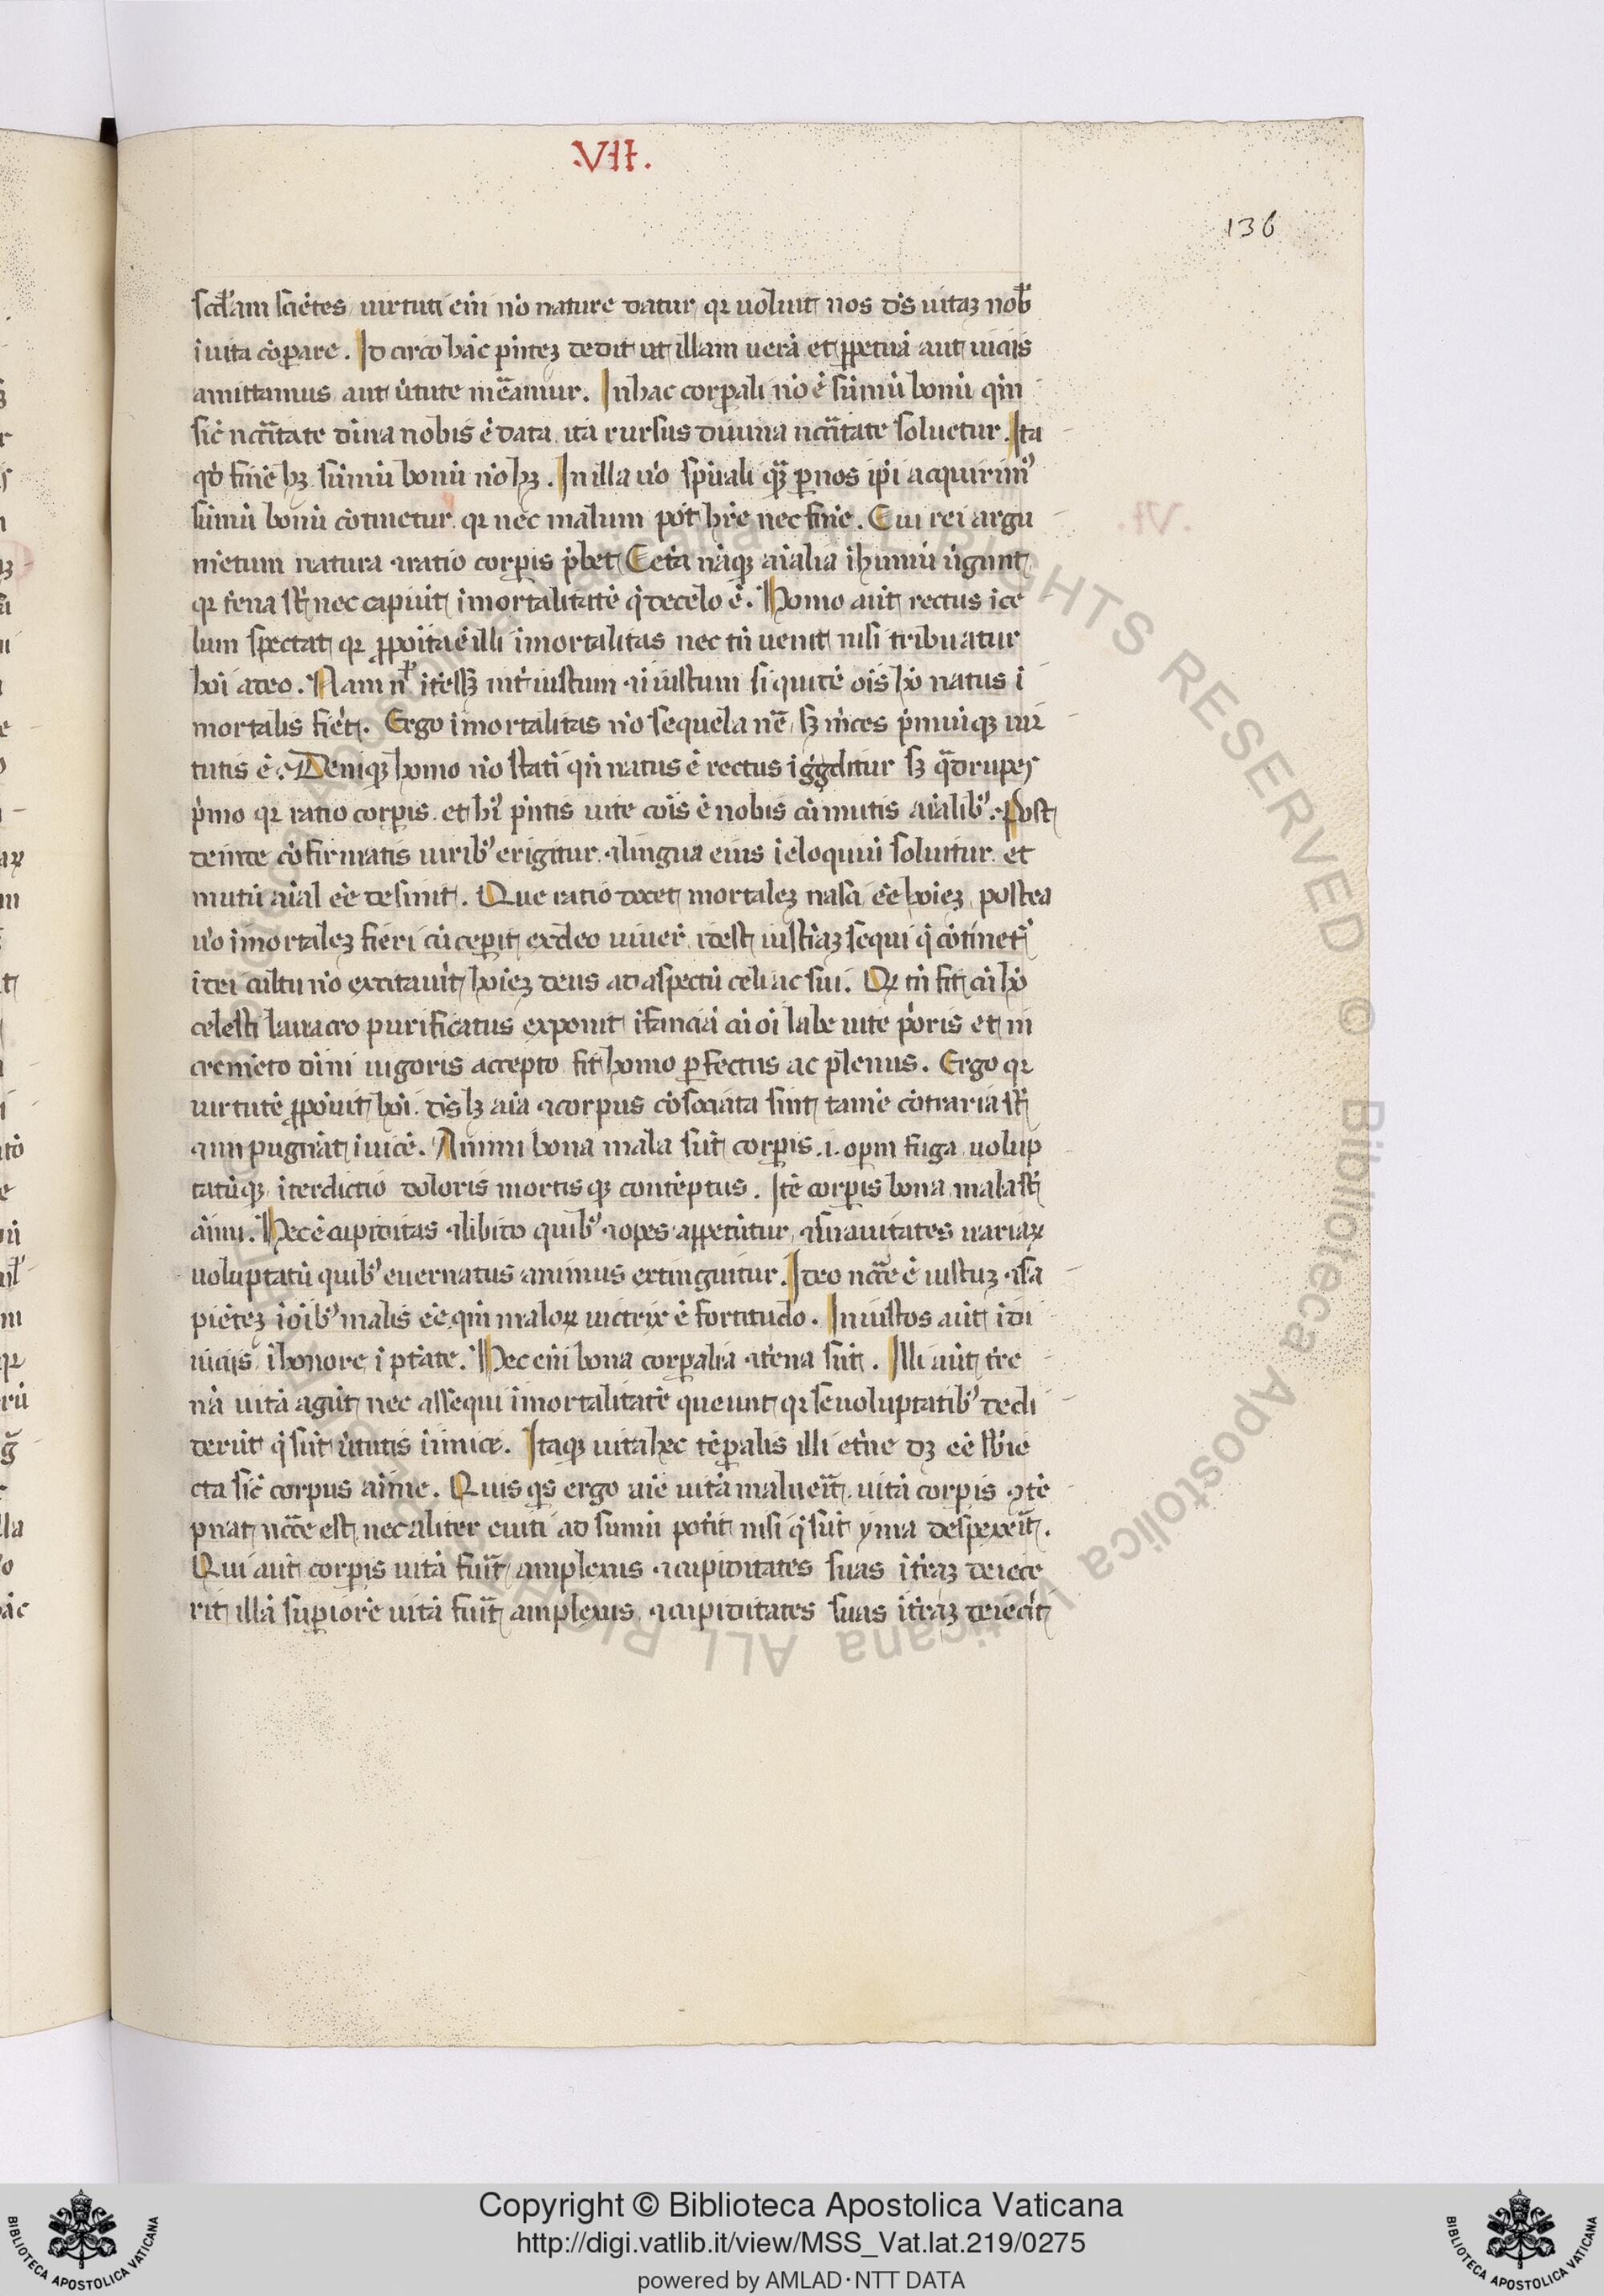 .VII.
136
scđam sciētes uirtuti eīm nō nature datur qꝛ uoluit nos ds̄ uitaꝫ nob
ī uita cōparare. Idcirco hāc pn̄teꝫ dedit ut illam uerā et ꝑpetuā aut uiciis
amittamus aut ūtute mēamur. In hac corꝑali nō ē sūmū bonū qm̄
sic nccītate dīna nobis ē data ita rursus diuina nccītate soluetur. Ita
qd̄ finē hꝫ sūmū bonū nō hꝫ. In illa uō spūali quā ꝑ nos ip̄i acquirimꝰ
sūmū bonū cōtinetur qꝛ nec malum pōt hr̄e nec finē. Cui rei argu
mētum natura ⁊ ratio corꝑis p̄bet Cet̄a nāqꝫ aīalia ī humū ūgunt
qꝛ t̄rena st̄ nec capiūt īmortalitatē q̄ de celo ē. Homo aūt rectus ī ce
lum spectat qꝛ ꝓpoīta ē illi īmortalitas nec tn̄ uenit nisi tribuatur
hoī a deo. Nam nˡ īteēssꝫ int̄ iustum ⁊ īiustum siquidē oīs hō natus ī
mortalis fiēt. Ergo īmortalitas nō sequela nē sꝫ m̄ces p̄miūqꝫ uir
tutis ē. Deniqꝫ homo nō statī qn̄ natus ē rectus īgḡditur sꝫ qᵃdrupes
p̄mo qꝛ ratio corꝑis et hꝰ pn̄tis uite cōis ē nobis cū mutis aīalibꝰ. Post
deinde cōfirmatis uiribꝰ erigitur ⁊ lingua eius ī eloquiū soluitur et
mutū aīal eē desinit. Que ratio docet mortaleꝫ nasci eē hoīeꝫ postea
uō īmortaleꝫ fieri cū ceperit ex deo uiuer̄ idest iustīaꝫ sequi q̄ cōtinet̄
ī dei cultu nō excitauīt hoīeꝫ deus ad aspectū celi ac sui. Qꝛ tn̄ fit cū hō
celesti lauacro purificatus exponit īfanciā cū oī labe uite p̄oris et in
cremēto dīni uigoris accepto fit homo ꝑfectus ac plenus. Ergo qꝛ
uirtutē ꝓpoūit hoī ds̄ lꝫ aīa ⁊ corpus cōsociata sint tamē cōtraria st̄
⁊ īmpugnāt īuicē. Animi bona mala sūt corꝑis .i. opm fuga uolup
tatūqꝫ īterdictio doloris mortisqꝫ contēptus. Itē corꝑis bona mala st̄
aīmi. Hec ē cupiditas ⁊ libido quibꝰ ⁊ opes appetūtur ⁊ suauitates uariaꝝ
uoluptatū quibꝰ euernatus animus extinguitur. Ideo nccē ē iustuꝫ ⁊ sa
piēteꝫ ī oībꝰ malis eē qm̄ maloꝝ uictrix ē fortitudo. Iniustos aūt ī di
uiciis ī honore ī ptāte. Hec eīm bona corꝑalia ⁊ t̄rena sūt. Illi aūt t̄re
nā uitā agūt nec assequi īmortalitatē queunt qꝛ se uoluptatibꝰ dedi
derūt q̄ sūt ūtutis īimice. Itaqꝫ uita hec tēꝑalis illi et̄ne dꝫ eē sb̄ie
cta sic̄ corpus aīme. Quisqs ergo aīe uitā maluerīt uitā corꝑis ꝯtē
pnat nccē est nec aliter eniti ad sumū potit̄ nisi q̄ sūt yma despexerīt.
Qui aūt corꝑis uitā fuīt amplexus ⁊ cupiditates suas ī t̄raꝫ deiece
rit illā suꝑiorē uitā fuīt amplexus ⁊ cupiditates suas ī t̄raꝫ deiecīt
Copyright © Biblioteca Apostolica Vaticana
http://digi.vatlib.it/view/MSS_Vat.lat.219/0275
powered by AMLAD·NTT DATA